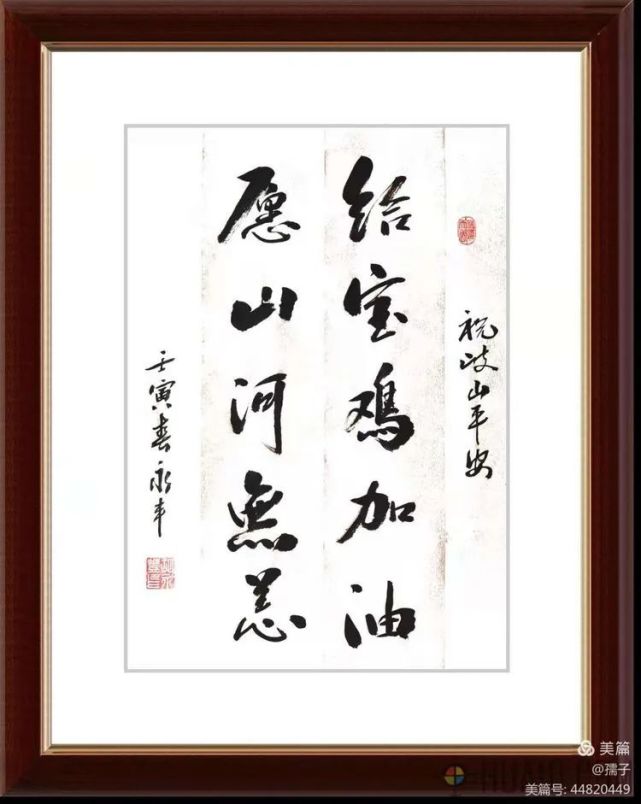 祝岐山平安
给宝鸡加油
愿山河無恙
壬寅春永平
美篇
@孺子
美篇号: 44820449